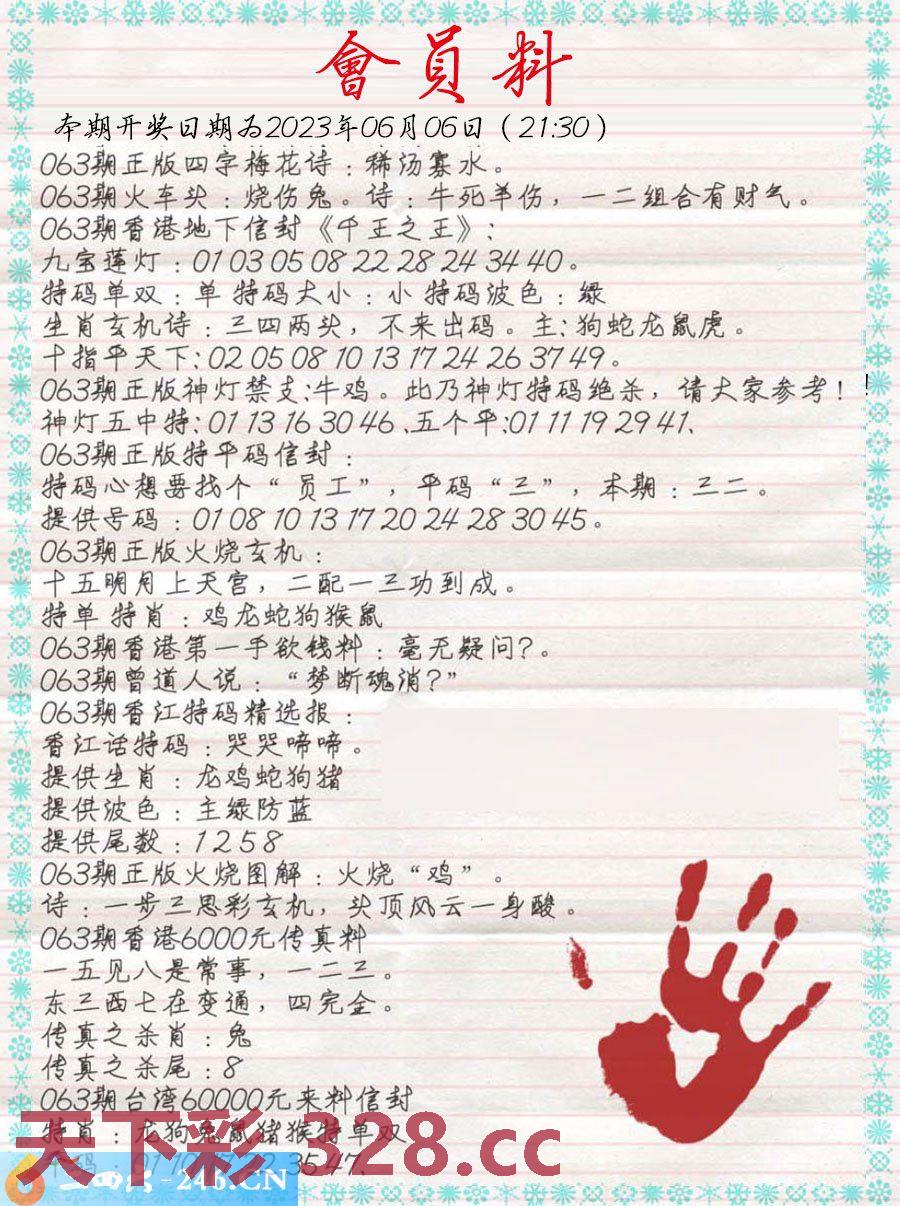 會員料
本期开奖日期为2023年06月06日（21:30）
063期正版四字梅花诗：稀汤寡水。
063期火车头：烧伤兔。诗：牛死羊伤，一二组合有财气。
063期香港地下信封《千王之王》：
九宝莲灯：01 03 05 08 22 28 24 34 40。
特码单双：单 特码大小：小 特码波色：绿
生肖玄机诗：三四两头，不来出码。主：狗蛇龙鼠虎。
十指平天下：02 05 08 10 13 17 24 26 37 49。
063期正版神灯禁支：牛鸡。此乃神灯特码绝杀，请大家参考！！
神灯五中特：01 13 16 30 46、五个平：01 11 19 29 41、
063期正版特平码信封：
特码心想要找个“员工”，平码“三”，本期：三二。
提供号码：01 08 10 13 17 20 24 28 30 45。
063期正版火烧玄机：
十五明月上天宫，二配一三功到成。
特单 特肖：鸡龙蛇狗猴鼠
063期香港第一手欲钱料：毫无疑问?。
063期曾道人说：“梦断魂消?”
063期香江特码精选报：
香江话特码：哭哭啼啼。
提供生肖：龙鸡蛇狗猪
提供波色：主绿防蓝
提供尾数：1 2 5 8
063期正版火烧图解：火烧“鸡”。
诗：一步三思彩玄机，头顶风云一身酸。
063期香港6000元传真料
一五见八是常事，一二三。
东三西七在变通，四完金。
传真之杀肖：兔
传真之杀尾：8
063期台湾60000元来料信封
特肖：龙狗兔鼠猪猴特单双
天下彩 328.cc
35 47、
-246.CN